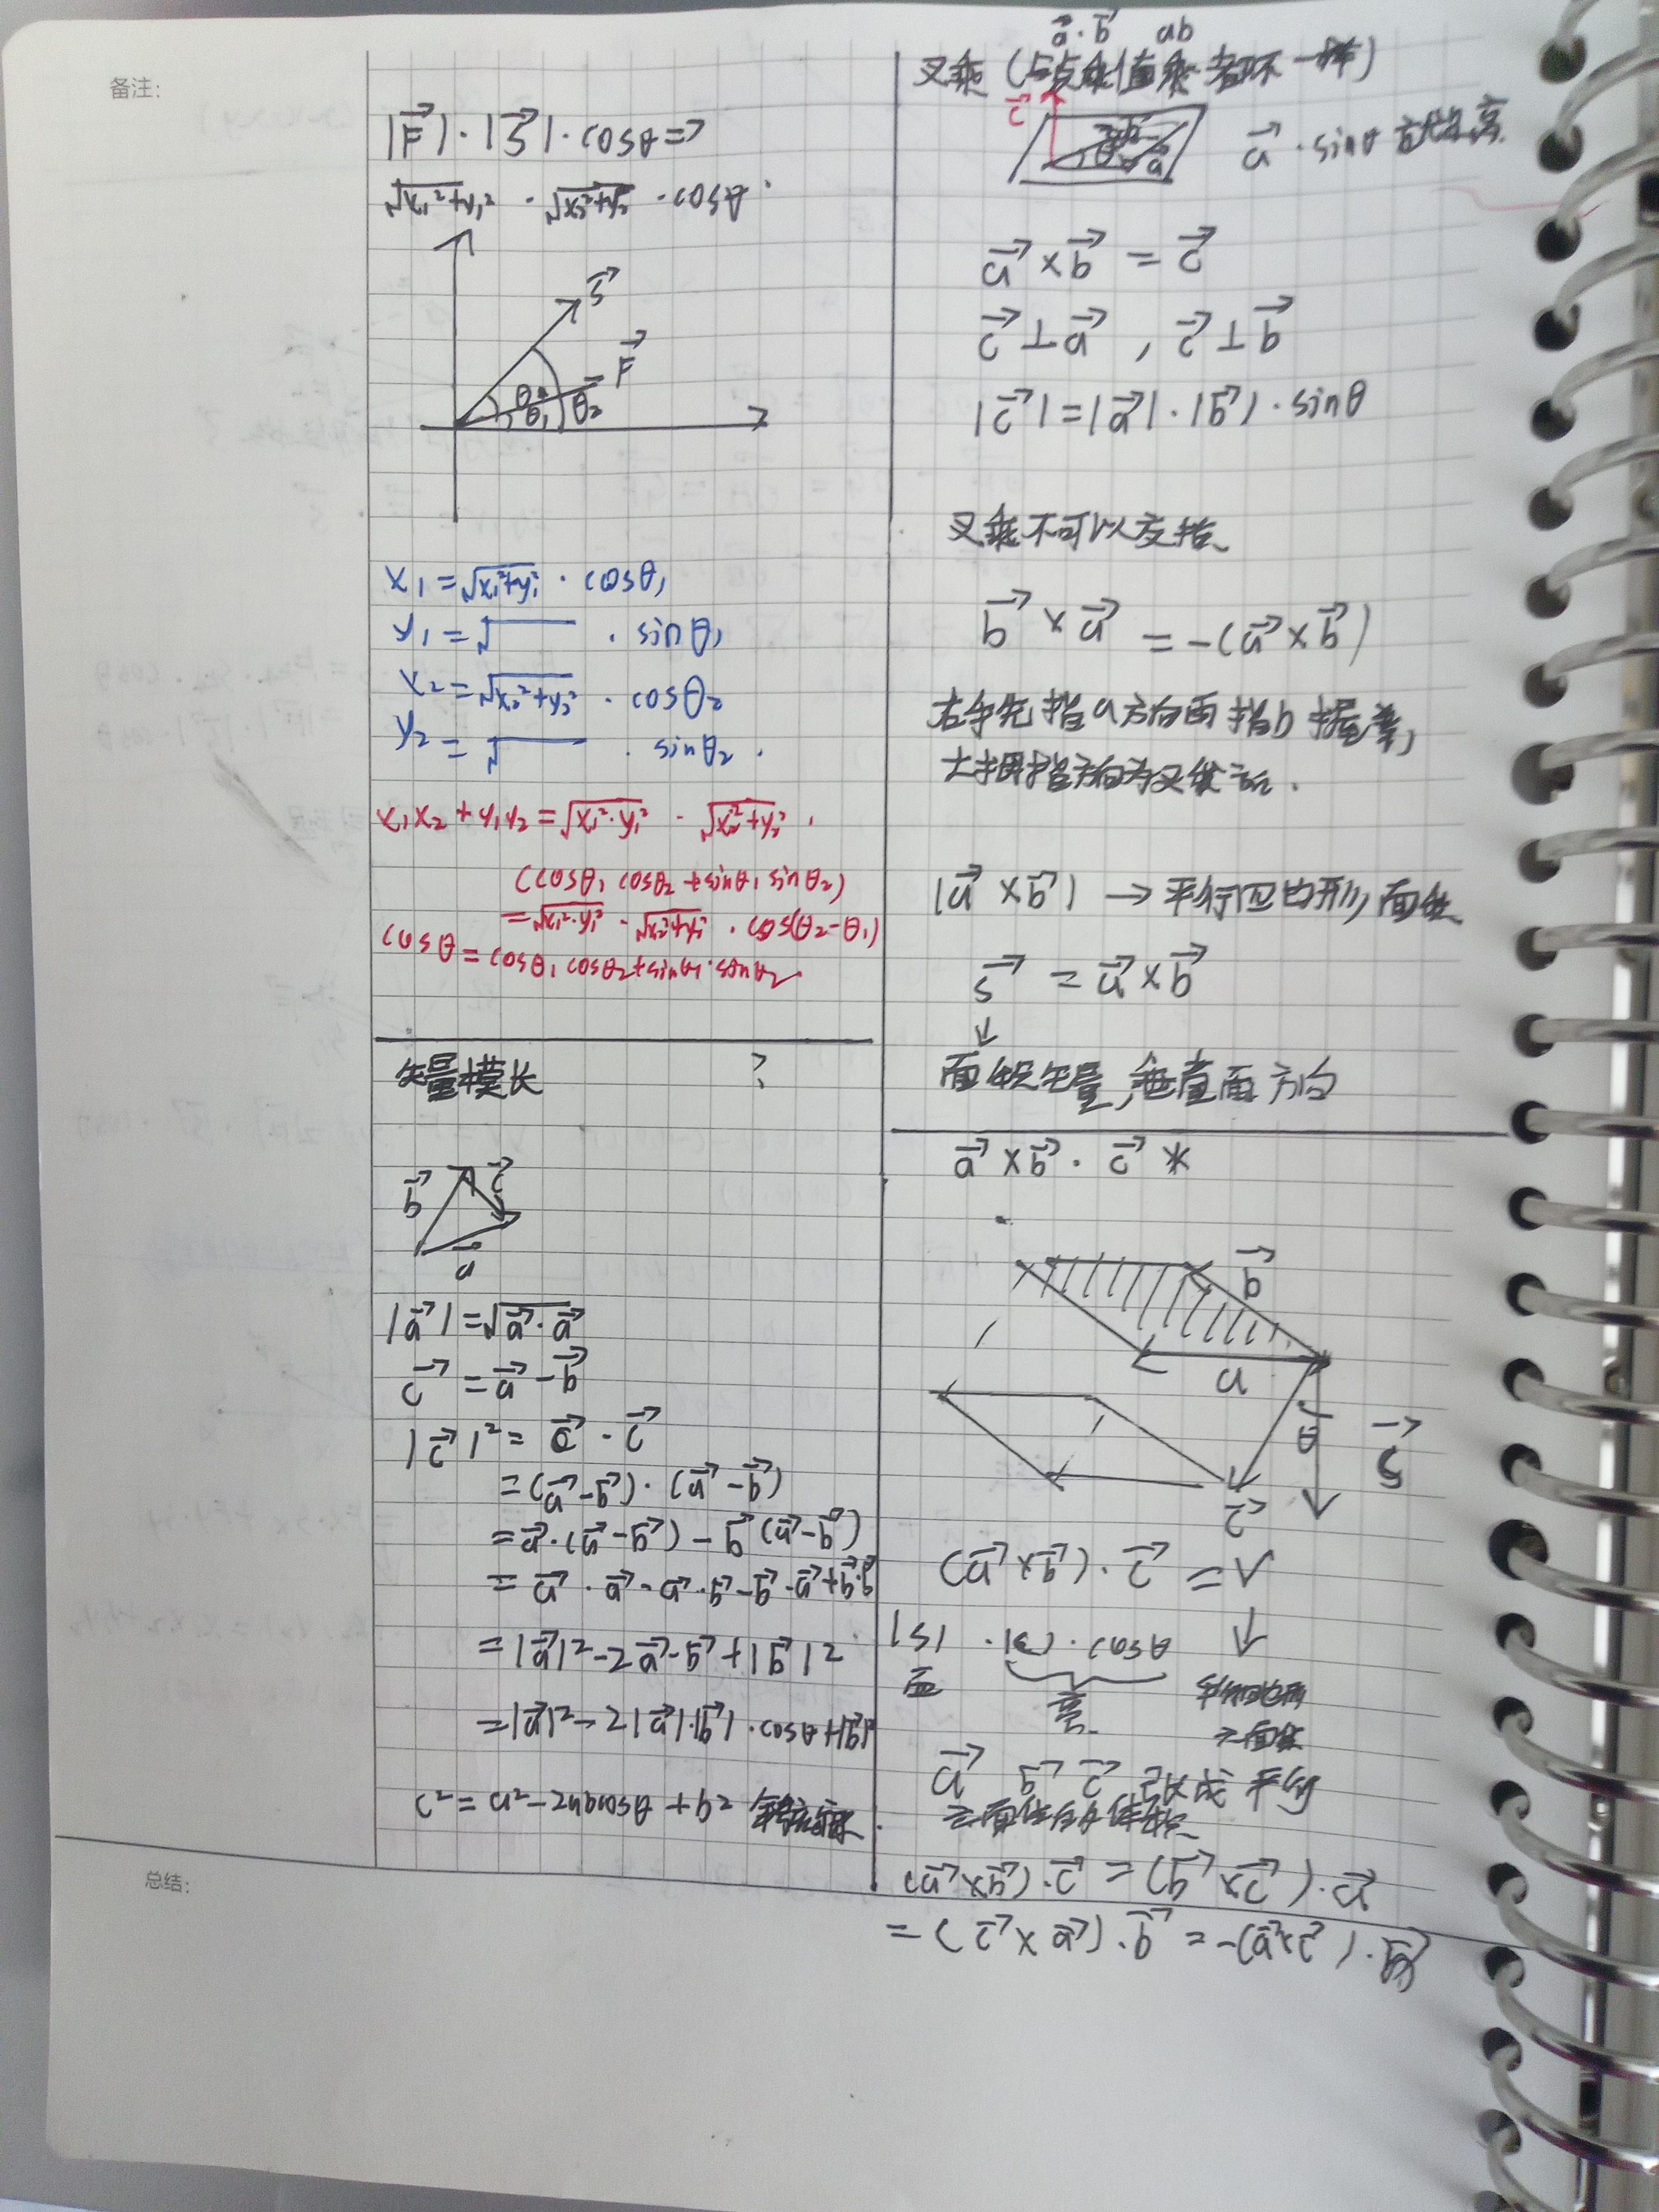 备注:
|F⃗|·|S⃗|·cosθ=>
√x₁²+y₁² · √x₂²+y₂² ·cosθ
S⃗
F⃗
θ
θ₁
θ₂
x₁=√x₁²+y₁² · cosθ₁
y₁=√ · sinθ₁
x₂=√x₂²+y₂² · cosθ₂
y₂=√ · sinθ₂ .
x₁x₂+y₁y₂=√x₁²·y₁² · √x₂²+y₂² ·
(cosθ₁ cosθ₂+sinθ₁ sinθ₂)
=√x₁²·y₁² · √x₂²+y₂² · cos(θ₂-θ₁)
cosθ=cosθ₁ cosθ₂+sinθ₁·sinθ₂
矢量模长 ?
b⃗
c⃗
a⃗
|a⃗|=√a⃗·a⃗
c⃗=a⃗-b⃗
|c⃗|²=c⃗·c⃗
=(a⃗-b⃗)·(a⃗-b⃗)
=a⃗·(a⃗-b⃗)-b⃗(a⃗-b⃗)
=a⃗·a⃗-a⃗·b⃗-b⃗·a⃗+b⃗·b⃗
=|a⃗|²-2a⃗·b⃗+|b⃗|²
=|a⃗|²-2|a⃗|·|b⃗|·cosθ+|b⃗|²
c²=a²-2abcosθ+b²
总结:
a⃗·b⃗ ab
叉乘(与点乘值乘都不一样)
c⃗
b⃗
θ
a⃗
a⃗·sinθ
a⃗×b⃗=c⃗
c⃗⊥a⃗, c⃗⊥b⃗
|c⃗|=|a⃗|·|b⃗|·sinθ
叉乘不可以交换、
b⃗×a⃗=-(a⃗×b⃗)
右手先指a方向再指b握拳,
大拇指方向为叉乘方向.
|a⃗×b⃗|→平行四边形面积
S⃗=a⃗×b⃗
↓
面积矢量,垂直面方向
a⃗×b⃗·c⃗ *
b⃗
a
θ
S⃗
c⃗
(a⃗×b⃗)·c⃗=V
↓
|S|·|c|·cosθ
面
高
平行
六面体
a⃗ b⃗ c⃗ 构成平行
六面体的体积
(a⃗×b⃗)·c⃗=(b⃗×c⃗)·a⃗
=(c⃗×a⃗)·b⃗=-(a⃗×c⃗)·b⃗